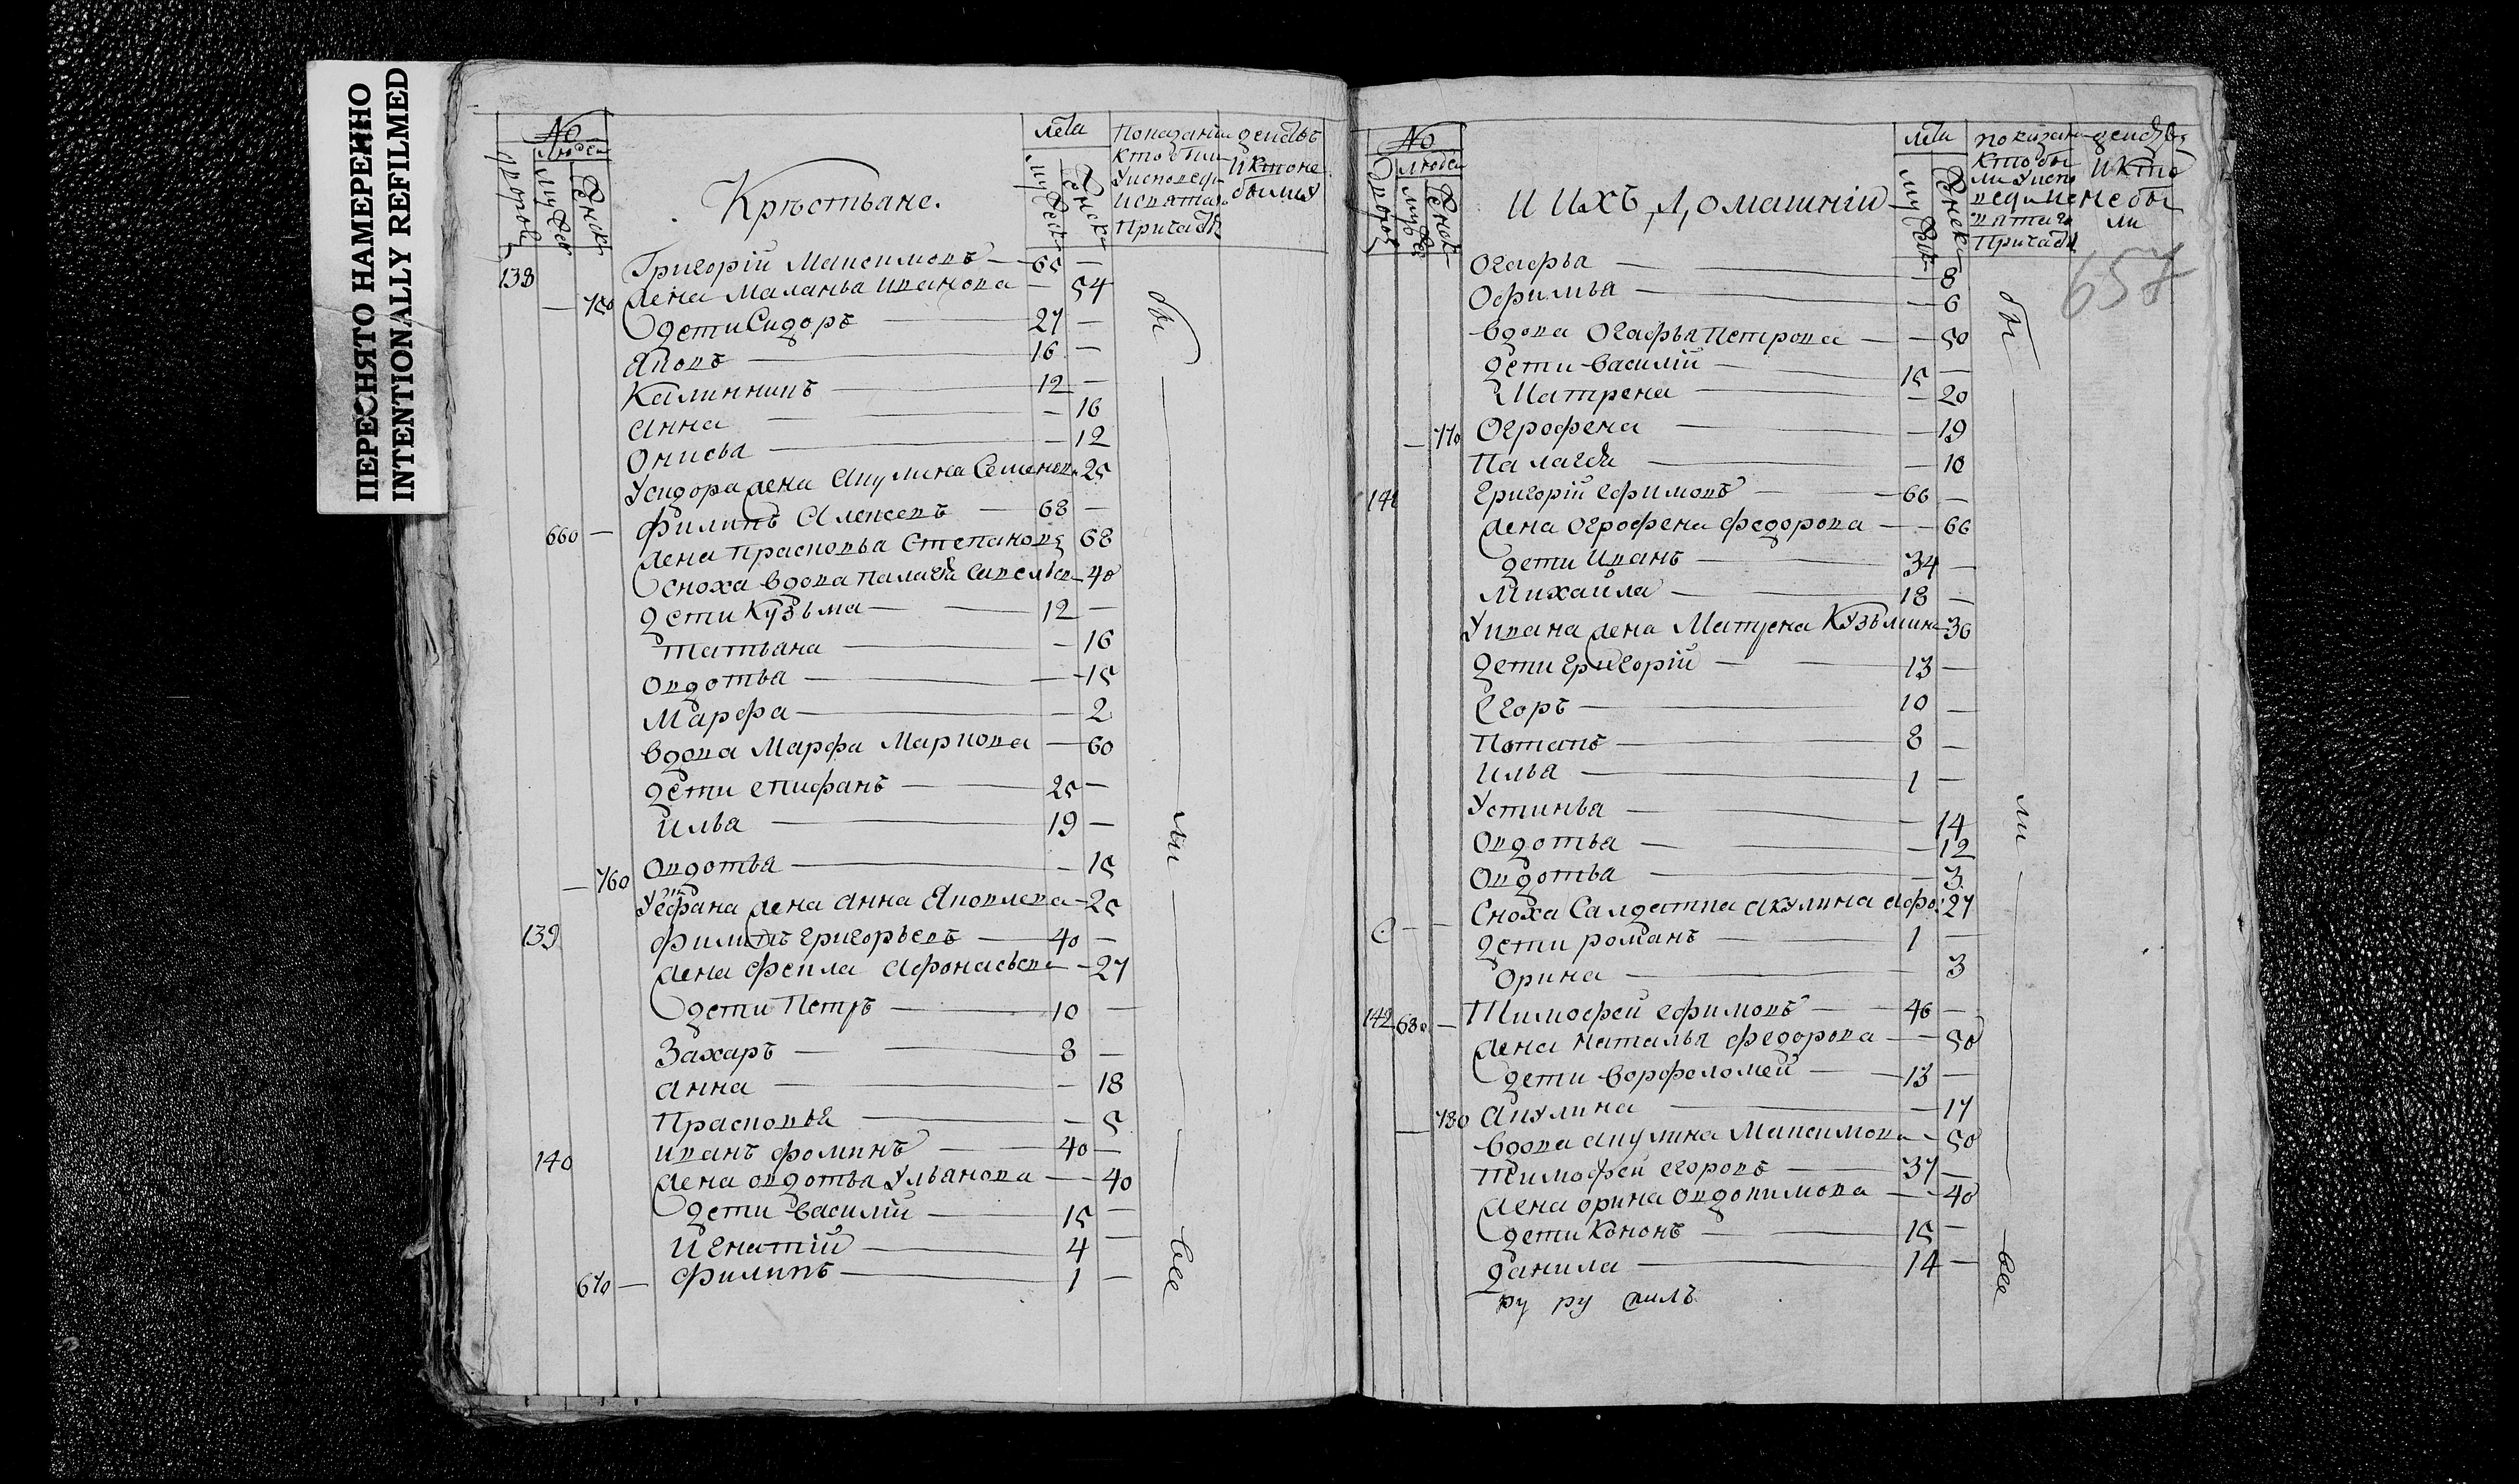 ПЕРЕСНЯТО НАМЕРЕННО
INTENTIONALLY REFILMED
№
Людей
Дворовъ
мужеск
Женск
Крѣстьяне.
Лета
мужеск
Женск
Показаніи действъ
кто были и кто не
у исповеди были
и святаго
Причастія
138 Григорій Максимовъ — 65 —
— 750 жена Маланья Иванова — 54
дети Сидоръ — 27 —
Яковъ — 16 —
Калинникъ — 12 —
Анна — 16
Онисья — 12
У Сидора жена Акулина Семенов 25
660 — Филипъ Алексевъ — 68 —
жена Прасковья Степанова 68
Сноха вдова Палагѣя Савельев — 40
дети Кузьма — 12 —
Татьяна — 16
Овдотья — 15
Марфа — 2
вдова Марфа Маркова — 60
дети Епифанъ — 25 —
Илья — 19 —
— 760 Овдотья — 15
У Епифана жена Анна Яковлева — 25
139 Филипъ Григорьевъ — 40 —
жена Фекла Афонасьева — 27
дети Петръ — 10 —
Захаръ — 8 —
Анна — 18
Прасковья — 5
140 Иванъ Фоминъ — 40 —
жена Овдотья Ульянова — 40
дети Василій — 15 —
Игнатій — 4 —
670 — Филипъ — 1 —
бы
ли
все
№
Людей
Дворовъ
мужес
Женск
И Ихъ Домашніи
Лета
мужеск
Женск
показани действъ
кто бы и кто
ли у испо не бы
веди и ли
святаго
Причастія
657
Огафья — 8
Офимья — 6
вдова Огафья Петрова — 50
дети Василій — 15 —
Матрена — 20
— 770 Огрофена — 19
Палагѣя — 10
141 Григорій Ефимовъ — 66 —
жена Огрофена Федорова — 66
дети Иванъ — 34 —
Михайла — 18 —
У Ивана жена Матрена Кузьмина — 36
дети Григорій — 13 —
Егоръ — 10 —
Потапъ — 8 —
Илья — 1 —
Устинья — 14
Овдотья — 12
Овдотья — 3
С — — Сноха Салдатка Акулина Афо: 27
дети Романъ — 1 —
Орина — 3
142 680 — Тимофей Ефимовъ — 46 —
жена Наталья Федорова — 50
дети Ворфоломей — 13 —
— 780 Акулина — 17
вдова Акулина Максимова — 50
Тимофей Егоровъ — 37 —
жена Орина Овдокимова — 40
дети Кононъ — 15 —
Данила — 14 —
бы
ли
все